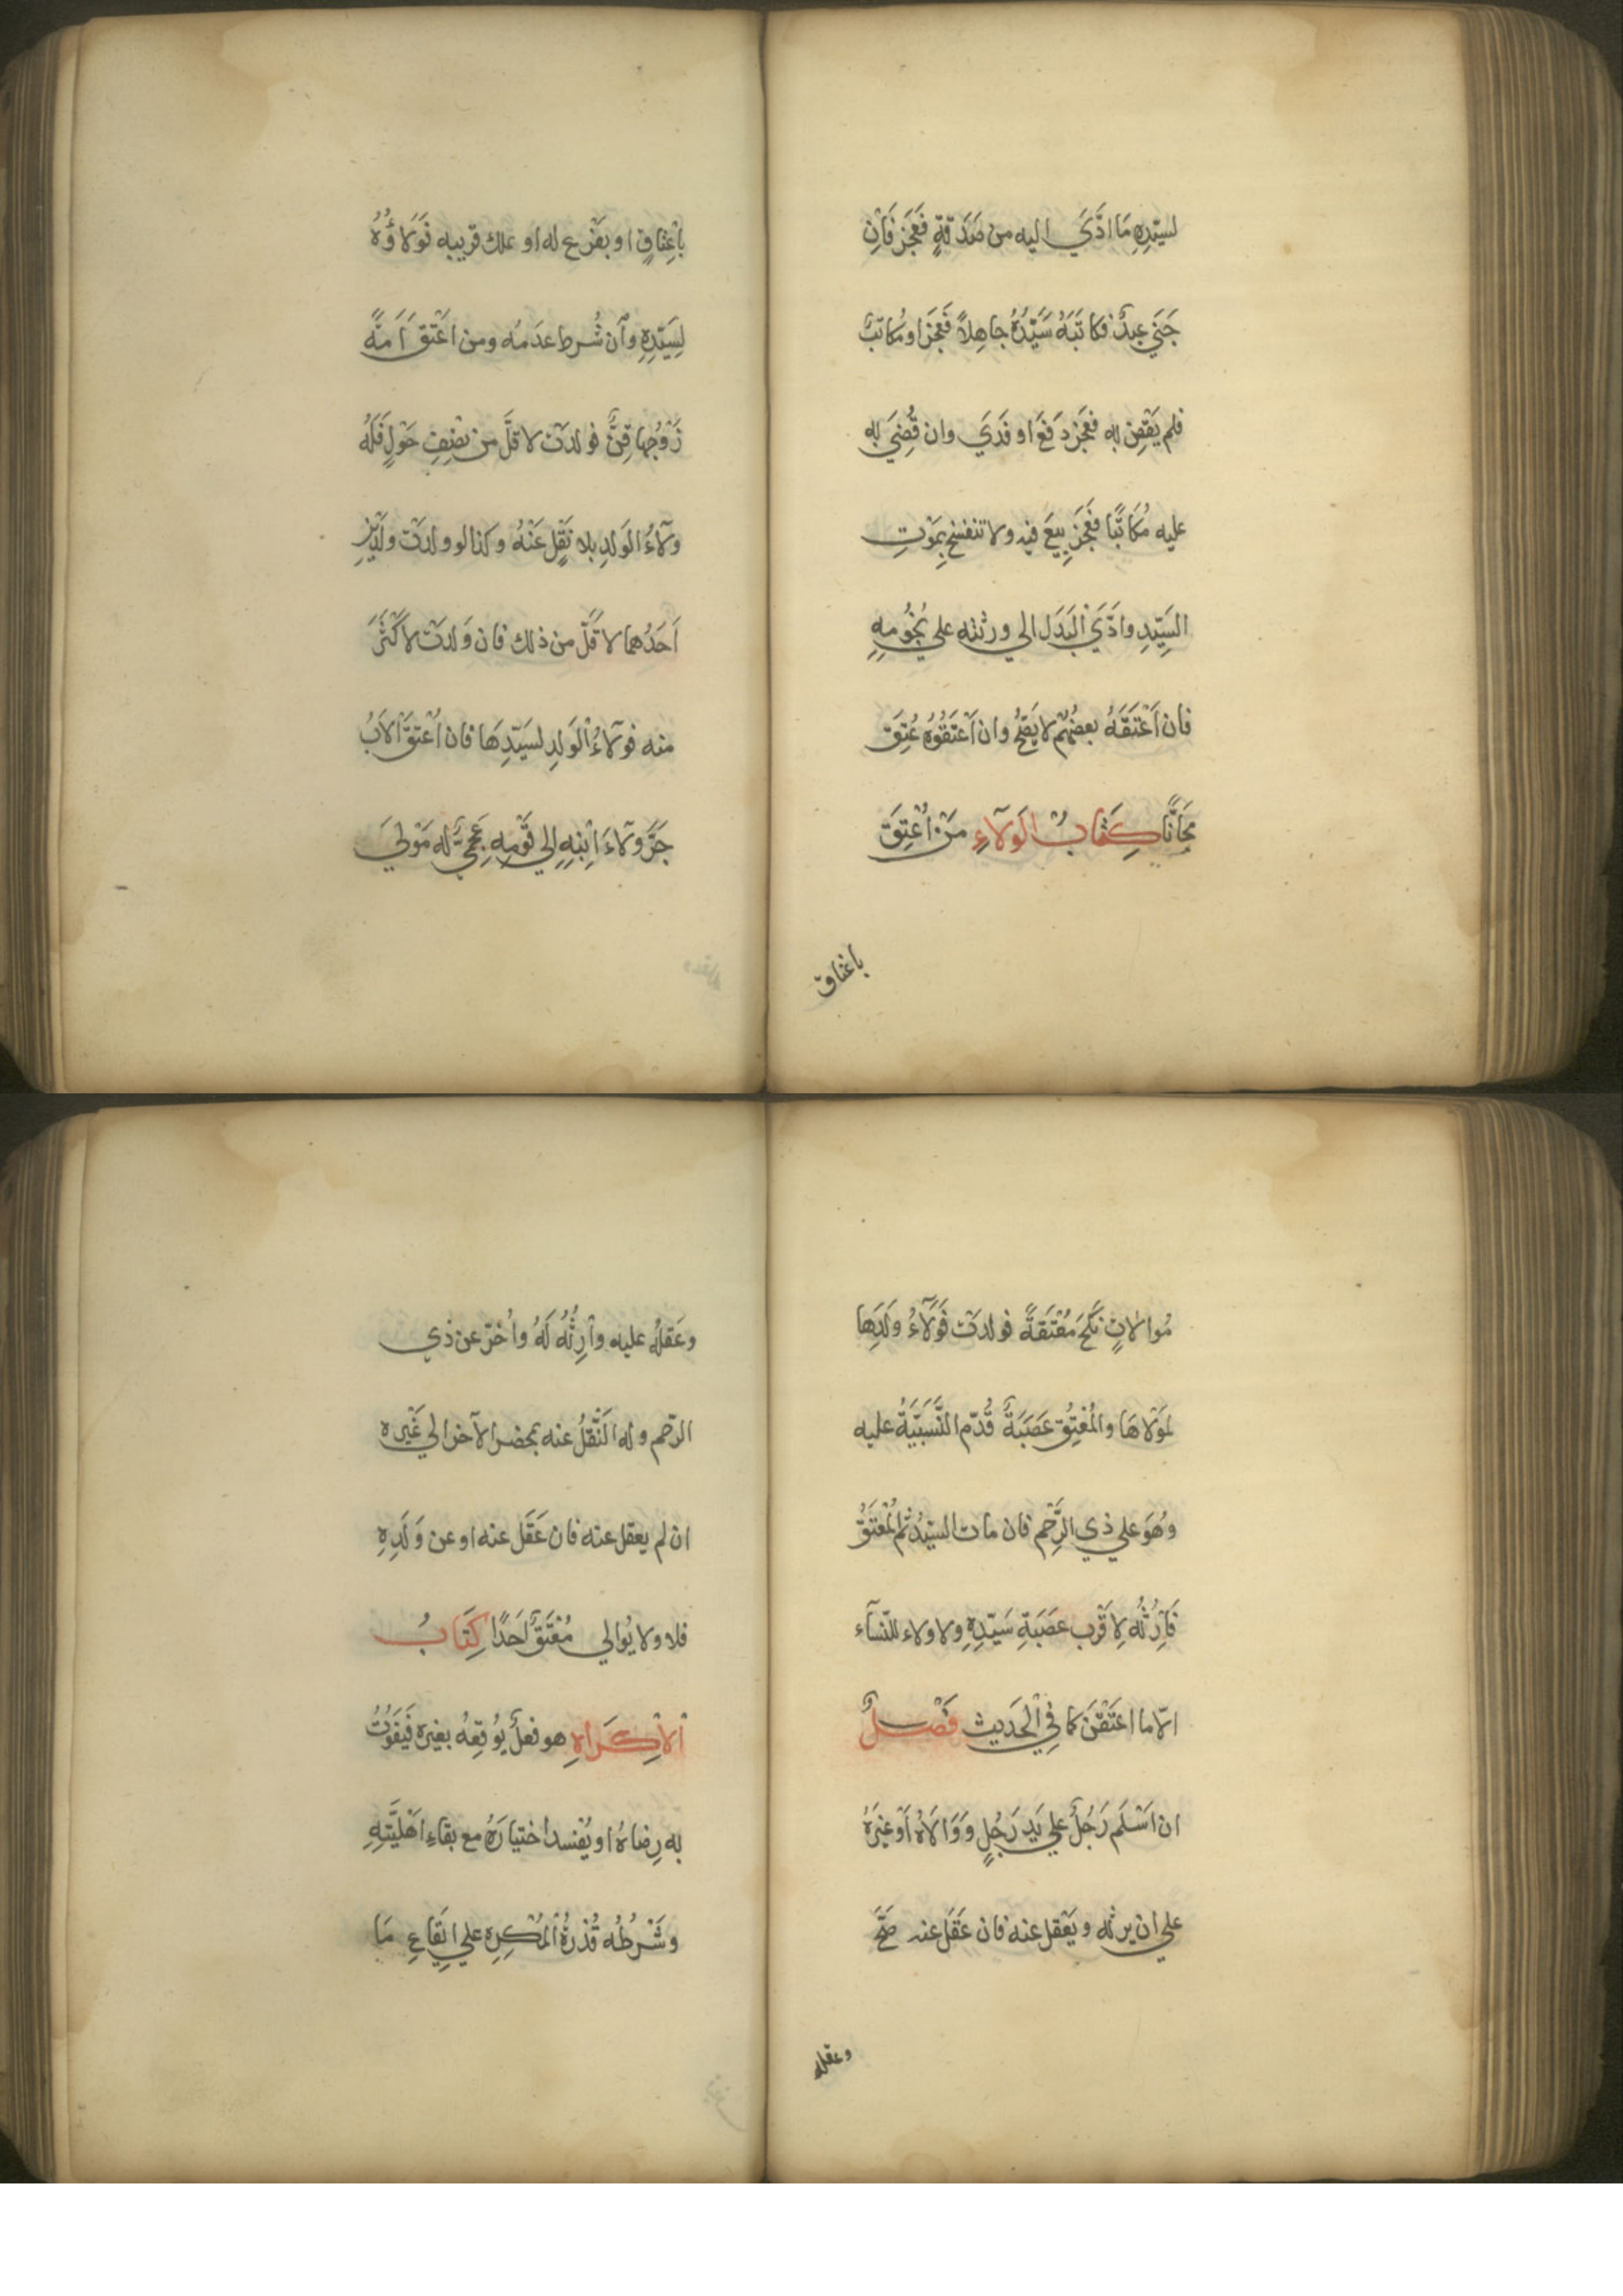 لسيّدِهِ مَا ادَّيَ اليه من صَدَقةٍ فَعَجَزَ فَاِنْ
جَنَي عبدٌ فكاتَبَهُ سَيّدُهُ جاهِلاً فعَجَزَ او مُكاتبٌ
فلم يَقْضِ به فعَجَزَ دَفَعَ او فَدَيَ وان قُضِيَ به
عليه مُكاتَبًا فعَجَزَ بِيعَ فيه ولا تنفسخ بِمَوْتِ
السَيِّدِ وادَّيَ البَدَلَ الي ورثته علي نُجُومِهِ
فان اَعْتَقَهُ بعضُهُم لا يَصِحُّ وان اَعْتَقُوهُ عُتِقَ
مَجَانًا كِتَابُ الوَلآءِ مَنْ اُعْتِقَ
باعتاق
بِاعْتِاقٍ او بفَرْعٍ له او ملك قريبه فَوَلاؤُهُ
لِسَيّدِهِ وَاَن شُرط عدَمُه ومن اَعْتَقَ اَمَةً
زَوْجُها قِنٌّ فولدَتْ لاقَلَّ من نِصْفِ حَوْلٍ فَلَهُ
ولآءُ الوَلدِ بلا نَقْلٍ عَنْهُ وكذا لو ولدَتْ ولَدَيْنِ
اَحَدُهما لاقَلَّ من ذلك فان وَلدَتْ لاكْثَرَ
منه فولآءُ الْوَلدِ لسَيّدِهَا فان اُعْتِقَ الاَبُ
جَرَّ ولآءَ اِبْنِهِ الي قَوْمِهِ عَجَمِيٌّ له مَوْلَي
مُوالاتٍ نَكَحَ مُعْتَقَةً فولدَتْ فَوَلآءُ ولَدِهَا
لمَوْلاهَا والمُعْتِقُ عَصَبَةٌ قُدّم النَّسَبيَّةُ عليه
وهُوَ علي ذي الرَّحْمِ فان مات السيّدُ ثم الْمُعْتَقُ
فَاِرْثُهُ لِاقْرَب عَصَبَةِ سَيّدِهِ ولا ولاء للنّسآء
الاّ ما اعتَقْنَ كما في الْحَديث فَصْلٌ
ان اَسْلَم رَجُلٌ علي يَدِ رَجُلٍ وَوَالاَهُ اَوْ غيْرَهُ
علي ان يرثه ويَعْقل عنه فان عَقَل عنه صَحَّ
وعقله
وعَقلُه عليه واِرْثُهُ لَهُ واُخّرَ عن ذي
الرّحم وله النَّقْلُ عنه بمحضر الآخر الي غَيْرِه
ان لم يعقل عنه فان عَقَل عنه او عن وَلَدِهِ
فلا ولا يُوالي مُعْتَقٌ اَحَدًا كِتَابُ
الْاِكْرَاهِ هو فعلٌ يُوقِعُه بغيره فَيَفُوتُ
به رِضاهُ او يُفْسد اختيارَهُ مع بقاءِ اَهْليَّتِهِ
وشَرْطُه قُدْرَةُ الْمُكْرِهِ علي ايقَاعِ مَا